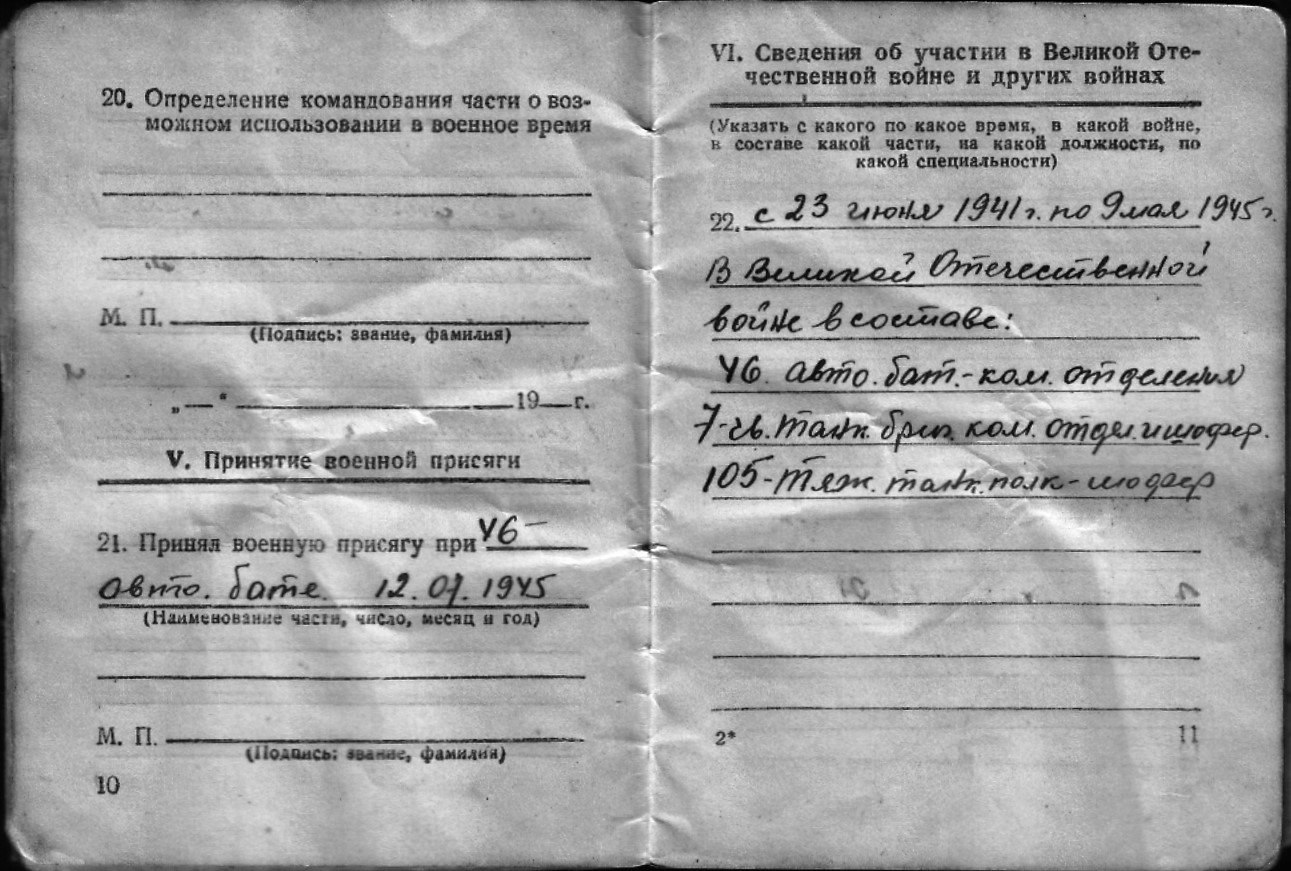 20. Определение командования части о воз-
можном использовании в военное время
М. П.
(Подпись: звание, фамилия)
„—“ 19—г.
V. Принятие военной присяги
21. Принял военную присягу при 46
авто. бате. 12.07.1945
(Наименование части, число, месяц и год)
М. П.
(Подпись: звание, фамилия)
10
VI. Сведения об участии в Великой Оте-
чественной войне и других войнах
(Указать с какого по какое время, в какой войне,
в составе какой части, на какой должности, по
какой специальности)
22. с 23 июня 1941 г. по 9 мая 1945 г.
В Великой Отечественной
войне в составе:
46. авто. бат. - ком. отделения
7-гв. танк. бриг. ком. отдел. и шофер.
105 - тяж. танк. полк - шофер
2*
11